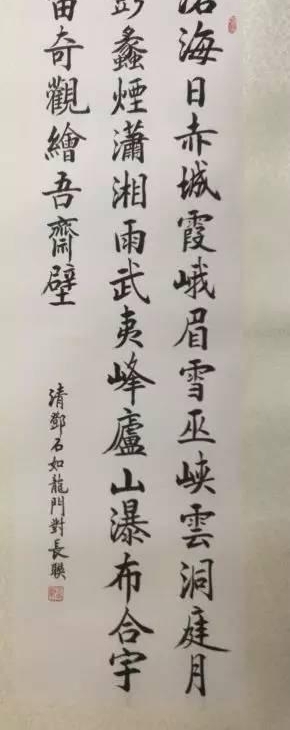 海日赤城霞峨眉雪巫峽雲洞庭月
蠡煙瀟湘雨武夷峰廬山瀑布合宇
宙奇觀繪吾齋壁
清鄧石如龍門對長聯